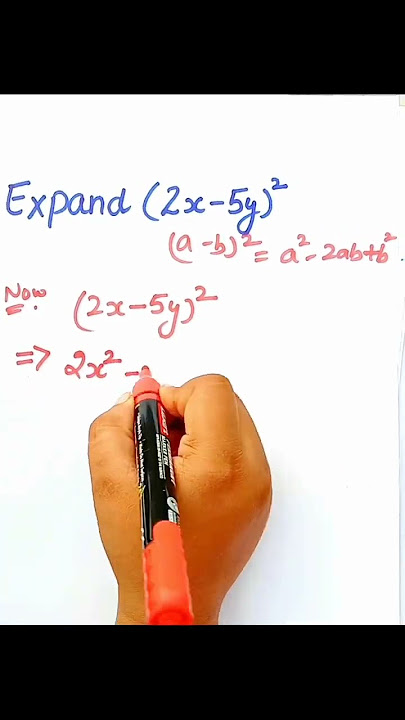 Expand (2x-5y)²
(a-b)² = a²-2ab+b²
Now
(2x-5y)²
=> 2x² -